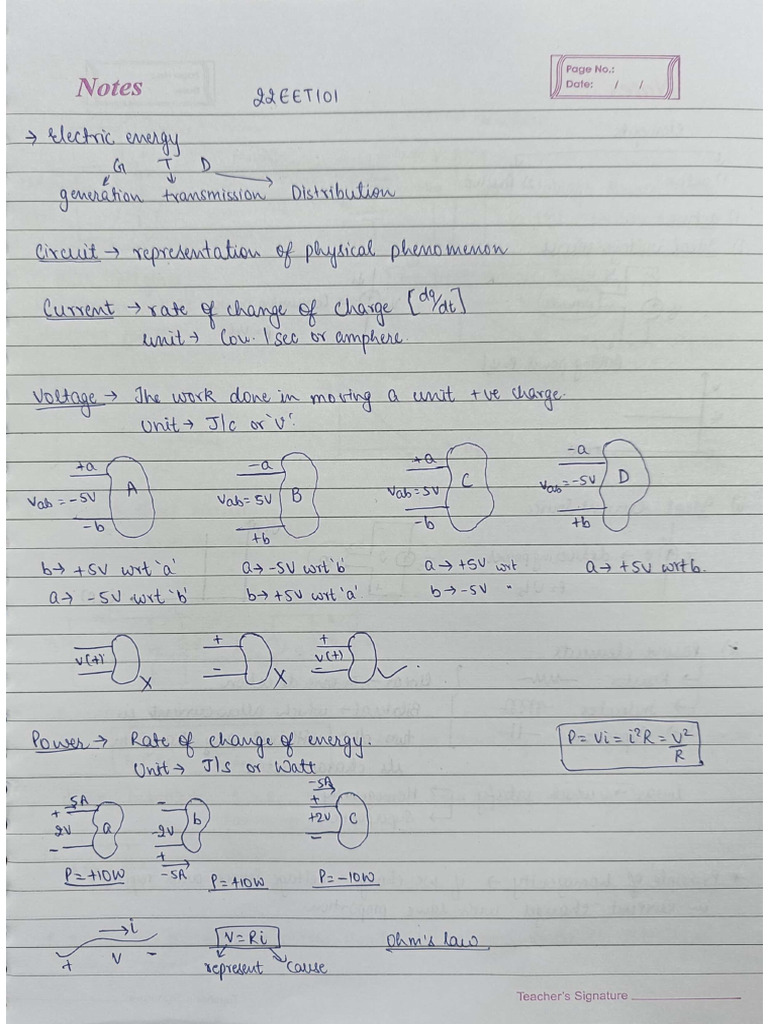 Notes
22EET101
Page No.:
Date: / /
→ Electric energy
G T D
generation transmission Distribution
Circuit → representation of physical phenomenon
Current → rate of change of charge [dq/dt]
unit → Cou. / sec or amphere.
Voltage → The work done in moving a unit +ve charge.
Unit → J/c or 'V'
+a -a +a -a
Vab = -5V A Vab = 5V B Vab = 5V C Vab = -5V D
-b +b -b +b
b → +5V wrt 'a' a → -5V wrt 'b' a → +5V wrt a → +5V wrt b.
a → -5V wrt 'b' b → +5V wrt 'a' b → -5V "
+ +
V(t) - V(t) -
x x ✓.
Power → Rate of change of energy.
Unit → J/s or Watt
P = Vi = i²R = V²/R
5A - -5A
+ 2V - a -2V b + +2V - C
+ -5A
P = +10W P = +10W P = -10W
→ i
+ V - V = Ri Ohm's law
represent cause
Teacher's Signature